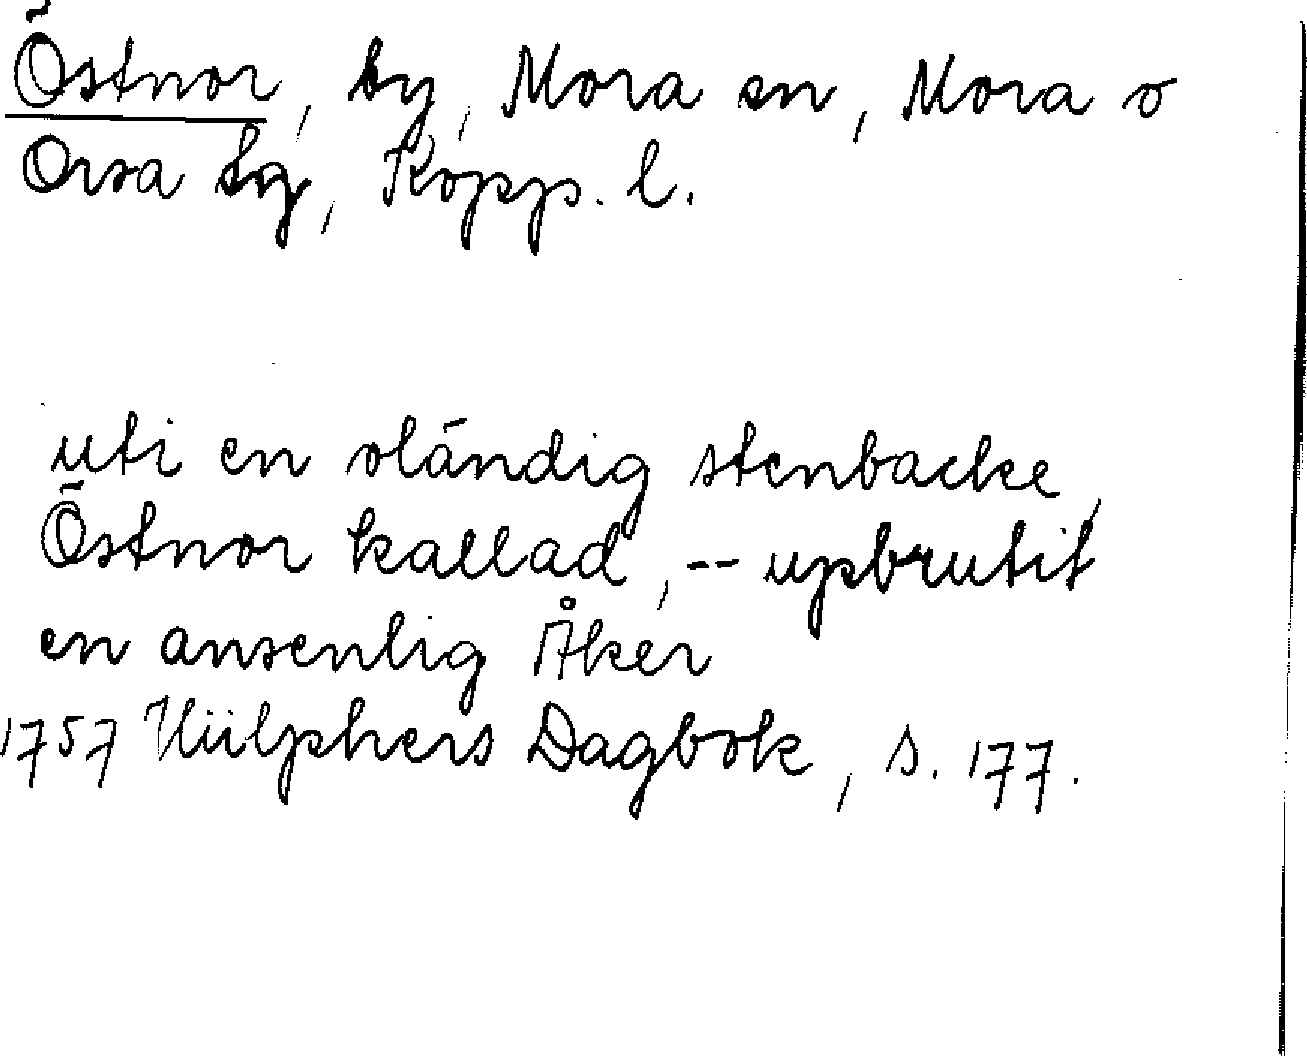 Östnor, by, Mora sn, Mora o
Orsa tg, Kopp. l.
uti en oländig stenbacke,
Östnor kallad, -- upbrutit
en ansenlig Åker
1757 Hülphers Dagbok, s. 177.